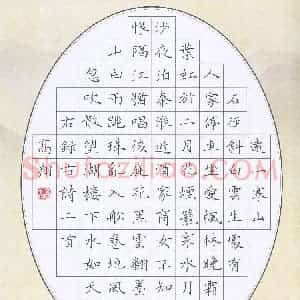 遠上寒山
石徑斜白雲生處有
人家停車坐愛楓林晚霜
葉紅於二月花煙籠寒水月
沙夜泊秦淮近酒家商女不知
恨隔江猶唱後庭花黑雲翻墨
山白雨跳珠亂入船卷地風
忽吹散望湖樓下水如天
右錄詩二首
Shufaziliao.com